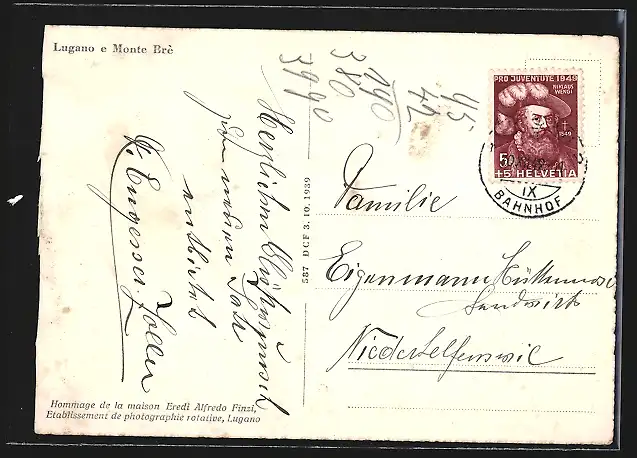 Lugano e Monte Brè
3990
380
190
42
45
Herzlichen Glückwunsch
zum neuen Jahr
entbietet
PRO JUVENTUTE 1949
NIKLAUS
WENGI
1549
5
+5 HELVETIA
IX
BAHNHOF
587 DCF 3. 10. 1939
Familie
Eigenmann
Landwirt
Niederhelfenswil
Hommage de la maison Eredi Alfredo Finzi,
Etablissement de photographie rotative, Lugano